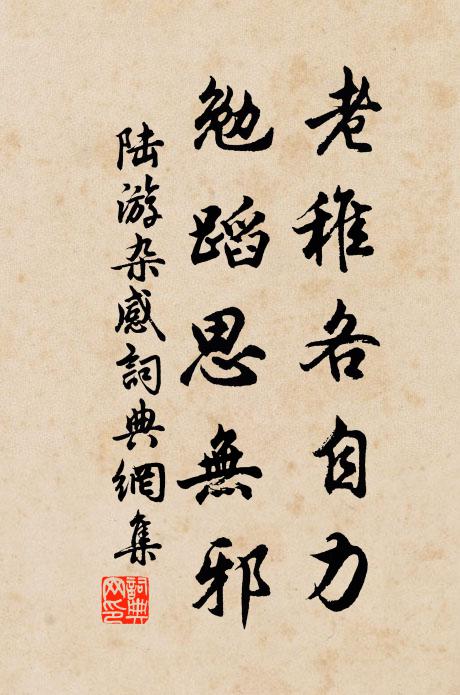 老稚各自力
勉蹈思無邪
陆游杂感詞典網集
詞典